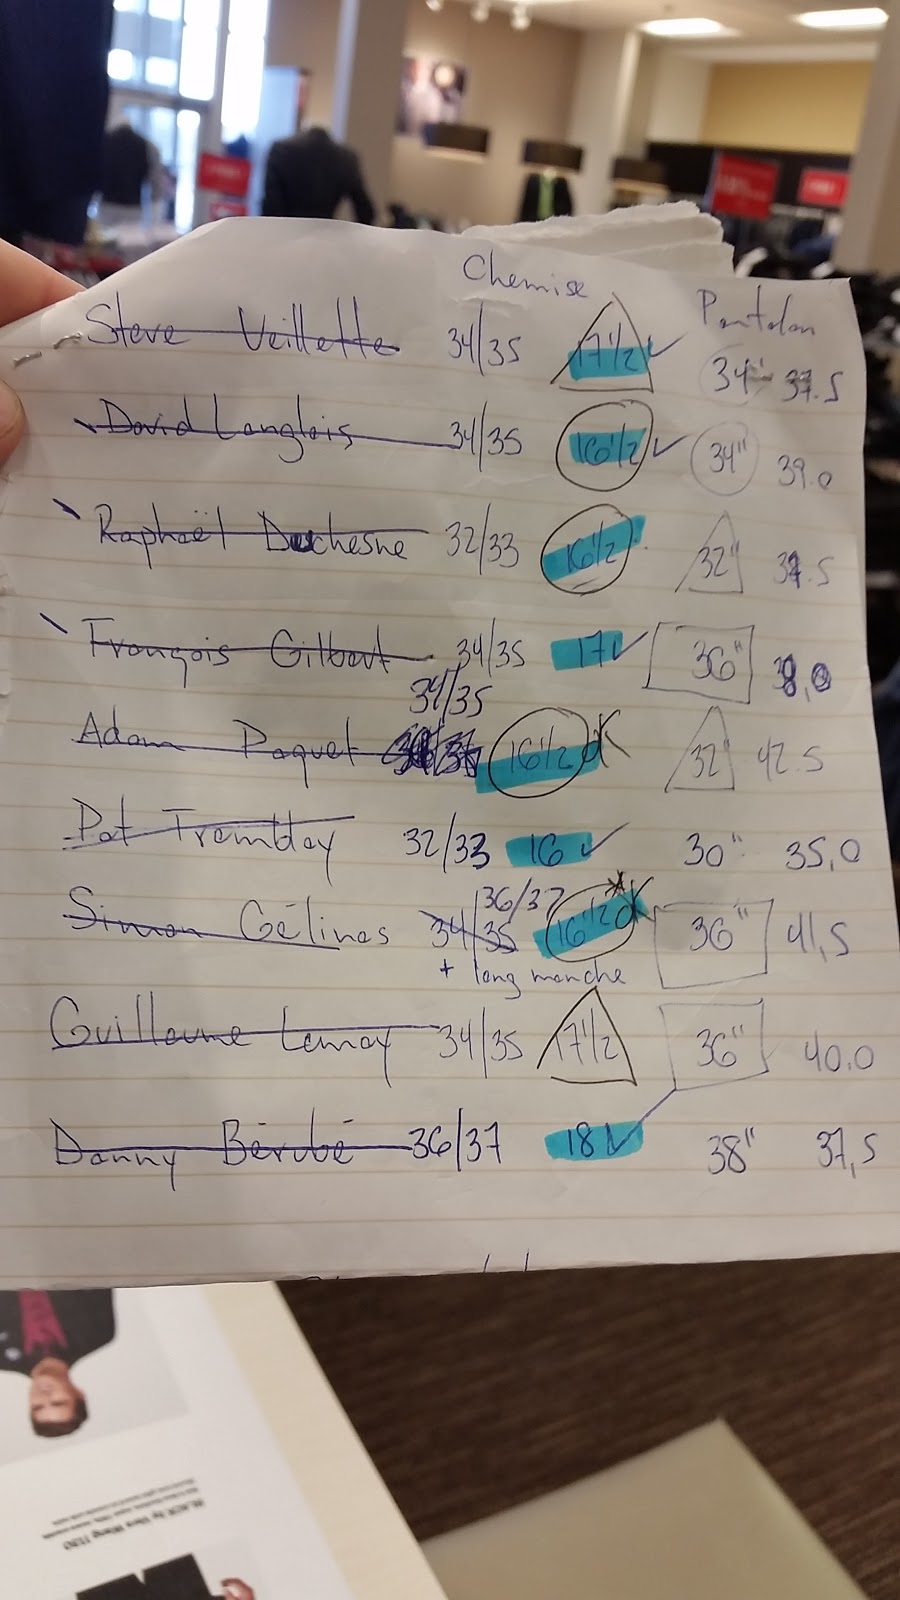 Chemise
Pantalon
Steve Veillette 34/35 17 1/2 ✓ 34" 37.5
David Langlois 34/35 16 1/2 ✓ 34" 39.0
Raphaël Duchesne 32/33 16 1/2 32"
François Gilbert 34/35 17 ✓ 36"
34/35
Adam Paquet 16 1/2 OK 32" 42.5
Pat Tremblay 32/33 16 ✓ 30" 35,0
36/37
Simon Gélinas 34/35 16 1/2 OK 36" 41,5
+ long manche
Guillaume Lemay 34/35 17 1/2 36" 40.0
Danny Bérubé 36/37 18 ✓ 38" 37,5